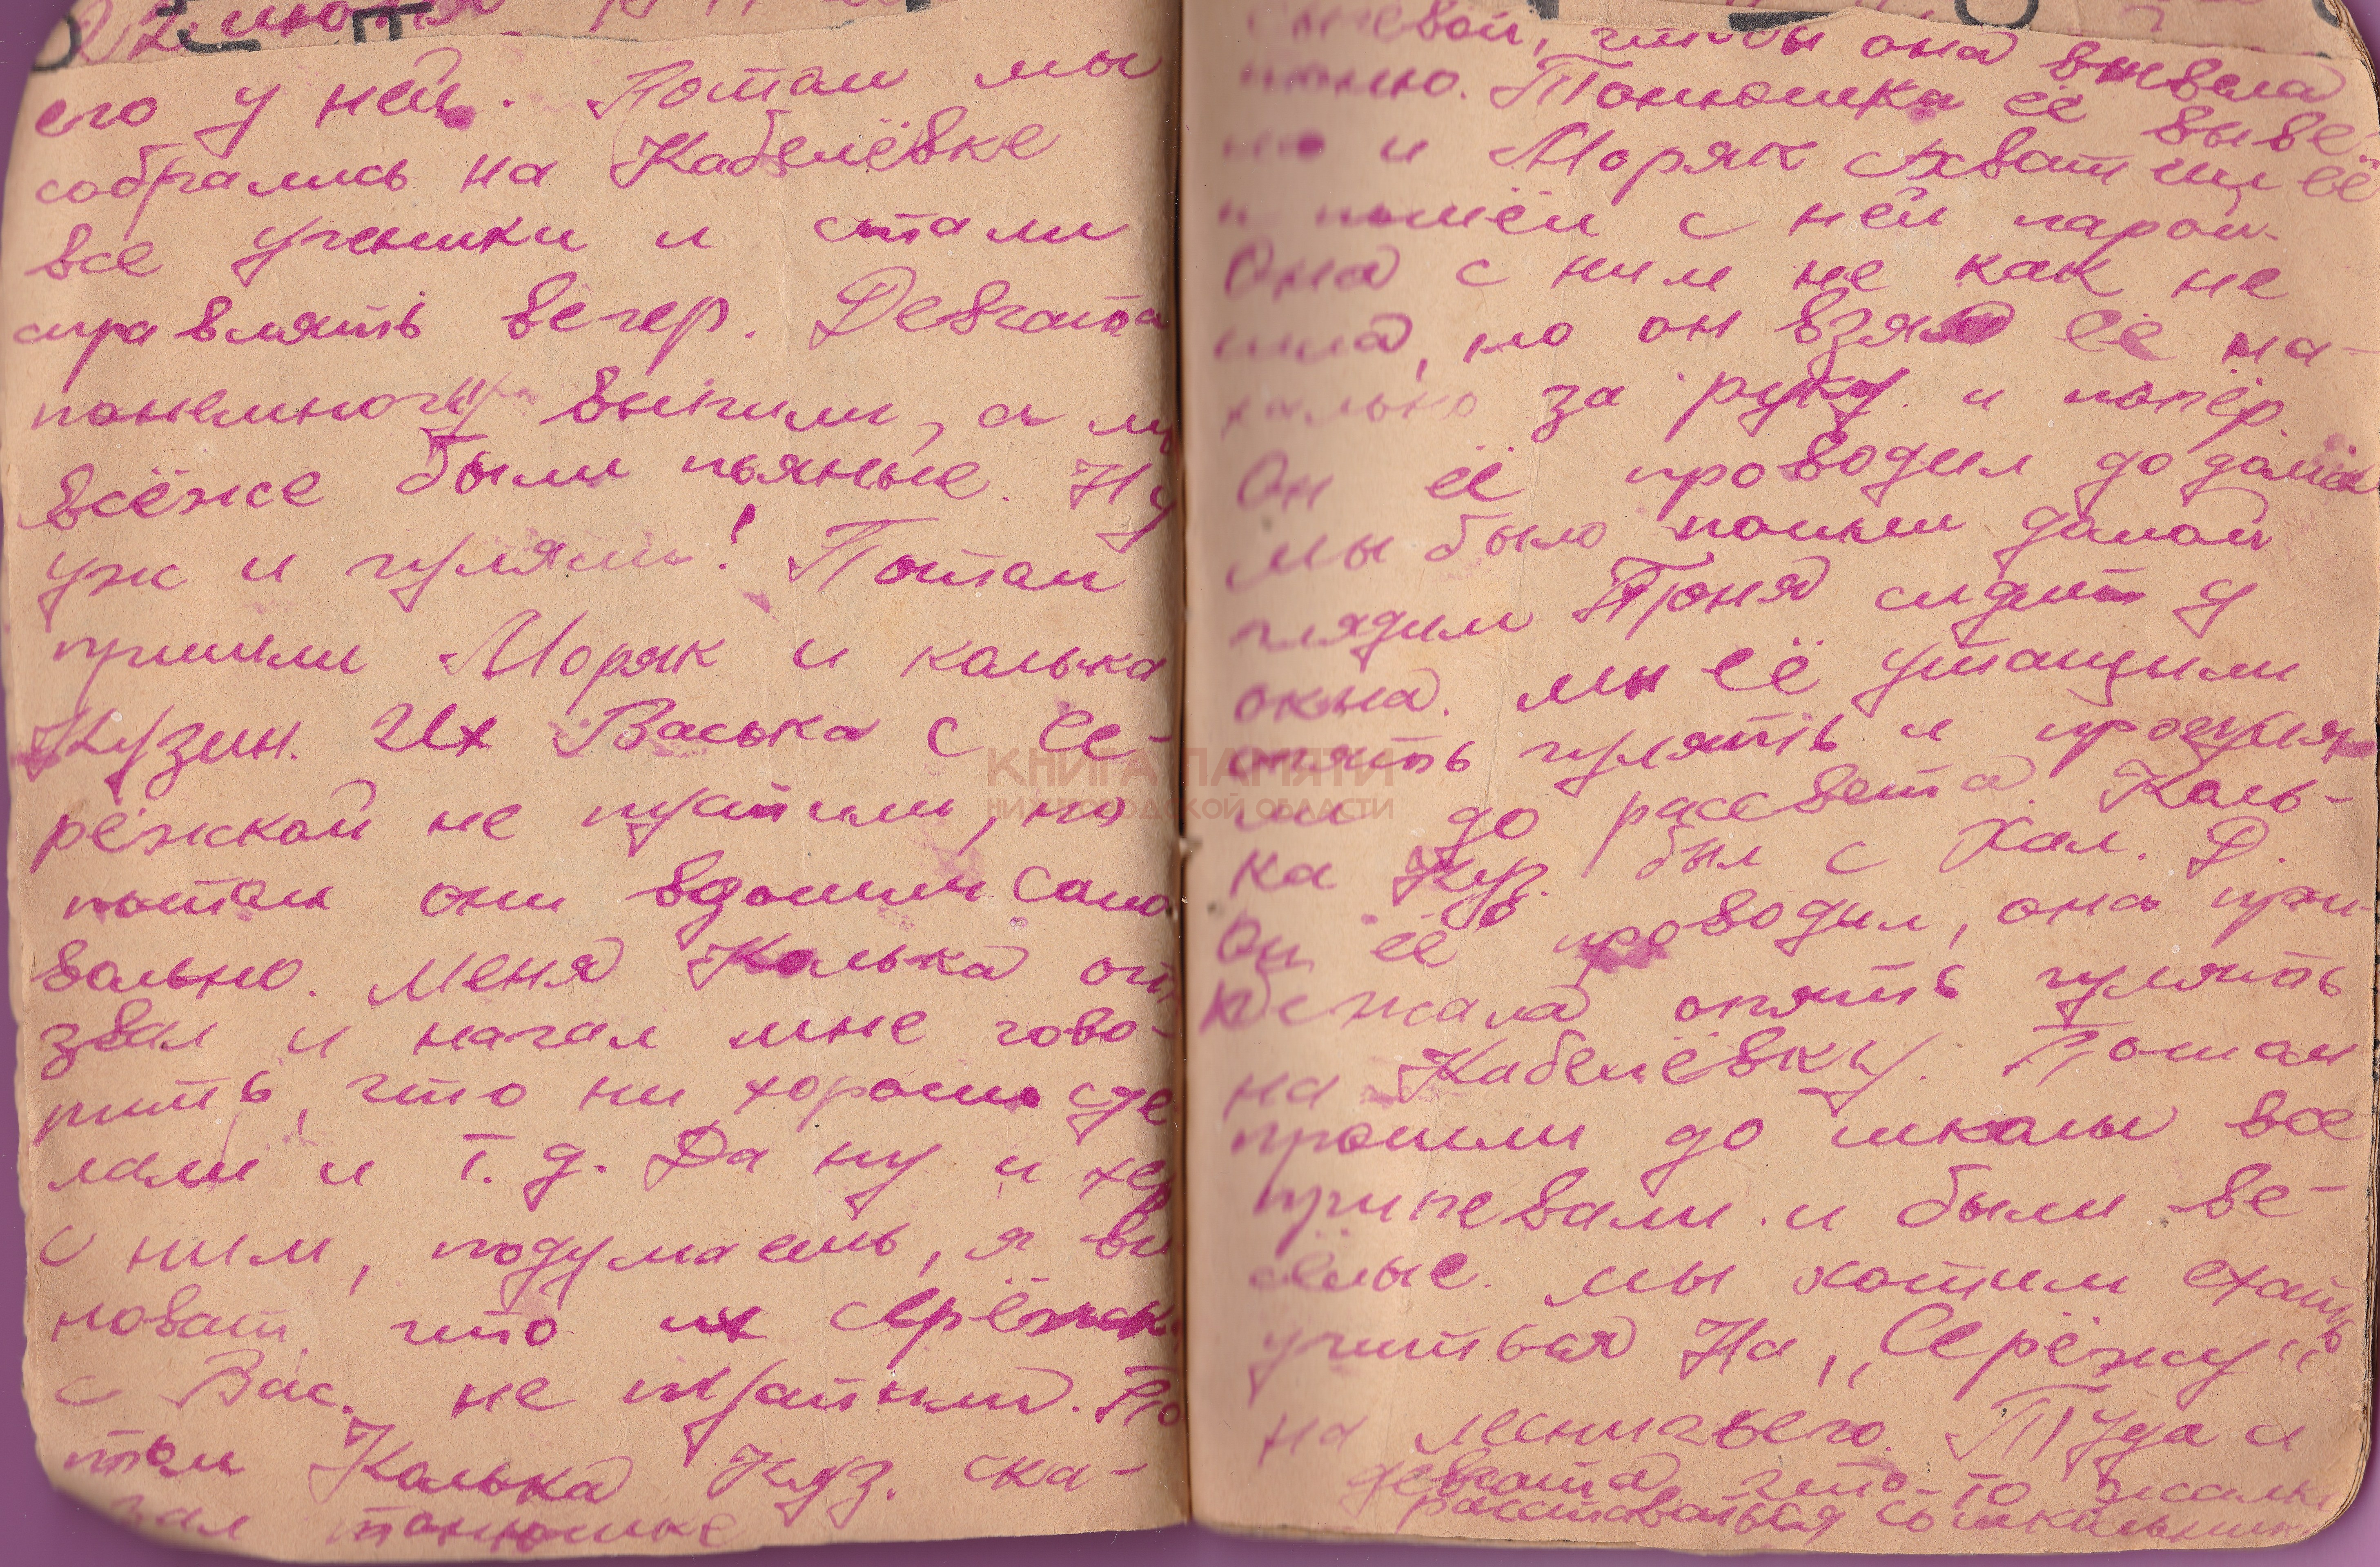 его у ней. Потом мы
собрались на Кабелёвке
все ученики и стали
справлять вечер. Девчата
понемногу выпили, а мы
всёже были пьяные. Ну
уж и гуляли! Потом
пришли Моряк и колька
Кузин. Их Васька с Се-
рёжкой не пустили, но
потом они вдошли само
вольно. Меня Колька ото
звал и начал мне гово-
рить, что ни хорошо сде
лали и т.д. Да ну и хер
с ним, подумаешь, я ви
новат, что их Серёжк
с Вас. не пустили. По
том Колька Куз. ска-
зал тонюшке
чтобы она вывела
Тонюшка её выве-
и Моряк схватил её
и пошёл с ней парой.
Она с ним не как не
шла, но он взял её на-
хально за руку и попёр.
Он её проводил до дома
мы было пошли домой
глядим Тоня сидит у
окна. мы её утащили
опять гулять и прогуля
ли до рассвета. Коль-
ка Куз. был с Хал. Д.
Он её проводил, она при-
бежала опять гулять
на Кабелёвку. Потом
прошли до школы все
припевали и были ве-
сёлые. мы хотим ехать
учиться На, „Серёжу"
на меничьего. Туда и
девчата что-то жалко
расставаться со школьник
КНИГА ПАМЯТИ
НИЖЕГОРОДСКОЙ ОБЛАСТИ